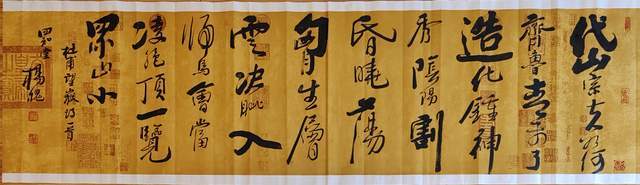 岱宗夫如何
齊魯青未了
造化鍾神
秀陰陽割
昏曉蕩
胷生層
雲決眦入
歸鳥會當
凌絕頂一覽
眾山小
杜甫望嶽詩一首
四知堂
楊